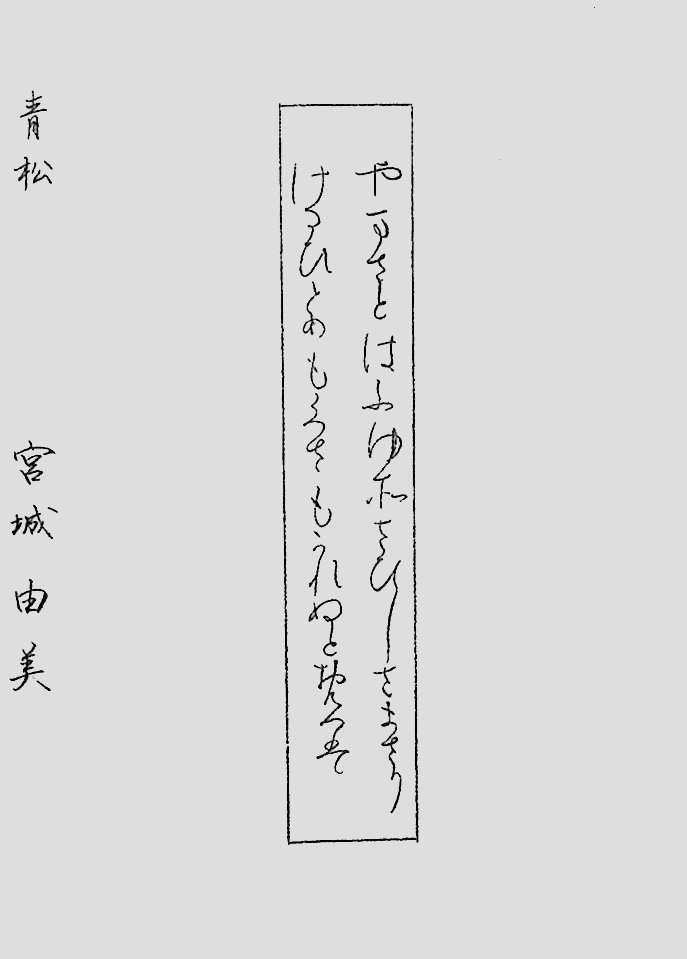 やまさとはふゆ所さひしさまさり
けるひとめもくさもかれぬとおもへは
青松　宮城由美